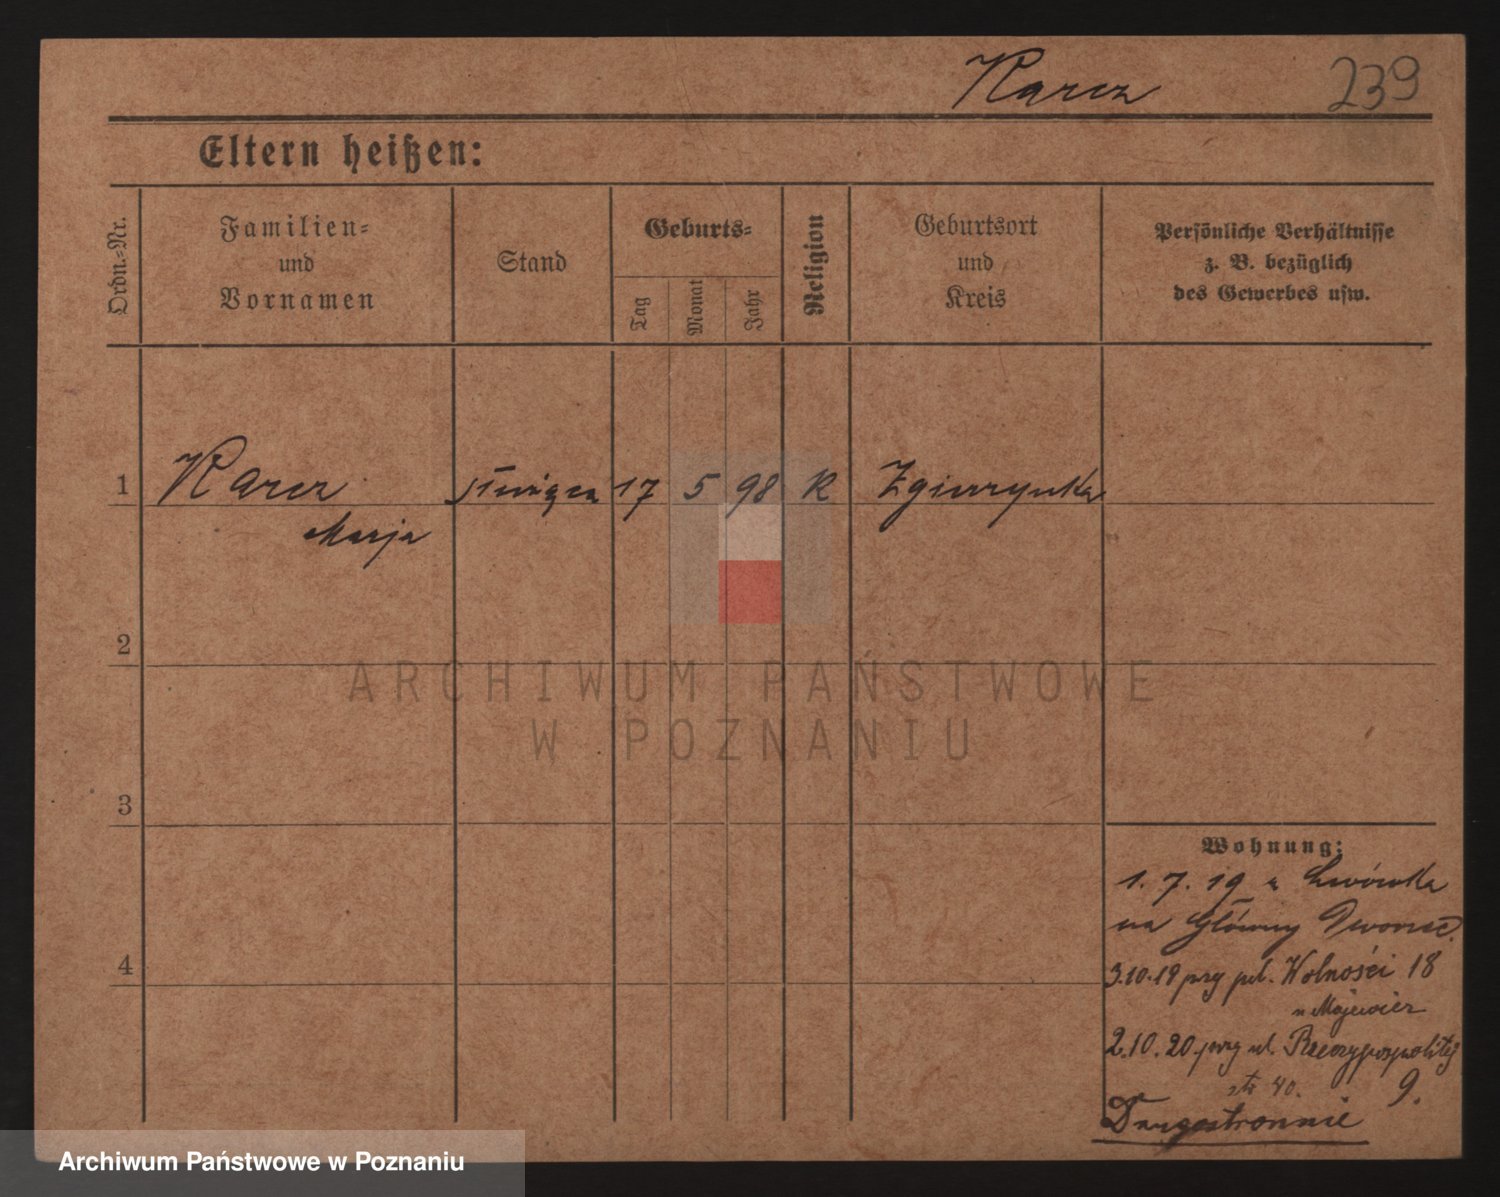 Karcz
239
Eltern heißen:
Ordn.-Nr.
Familien-
und
Vornamen
Stand
Geburts-
Tag
Monat
Jahr
Religion
Geburtsort
und
Kreis
Persönliche Verhältnisse
z. B. bezüglich
des Gewerbes usw.
1 Karcz 17 5 98 K
Marja
2
ARCHIWUM PAŃSTWOWE
W POZNANIU
3
Wohnung:
1. 7. 19 z Lwówka
na Główny Dworzec.
4
3.10.19 przy pl. Wolności 18
2.10.20 przy ul. Rzeczypospolitej
9.
str 40.
Drugostronnie
Archiwum Państwowe w Poznaniu